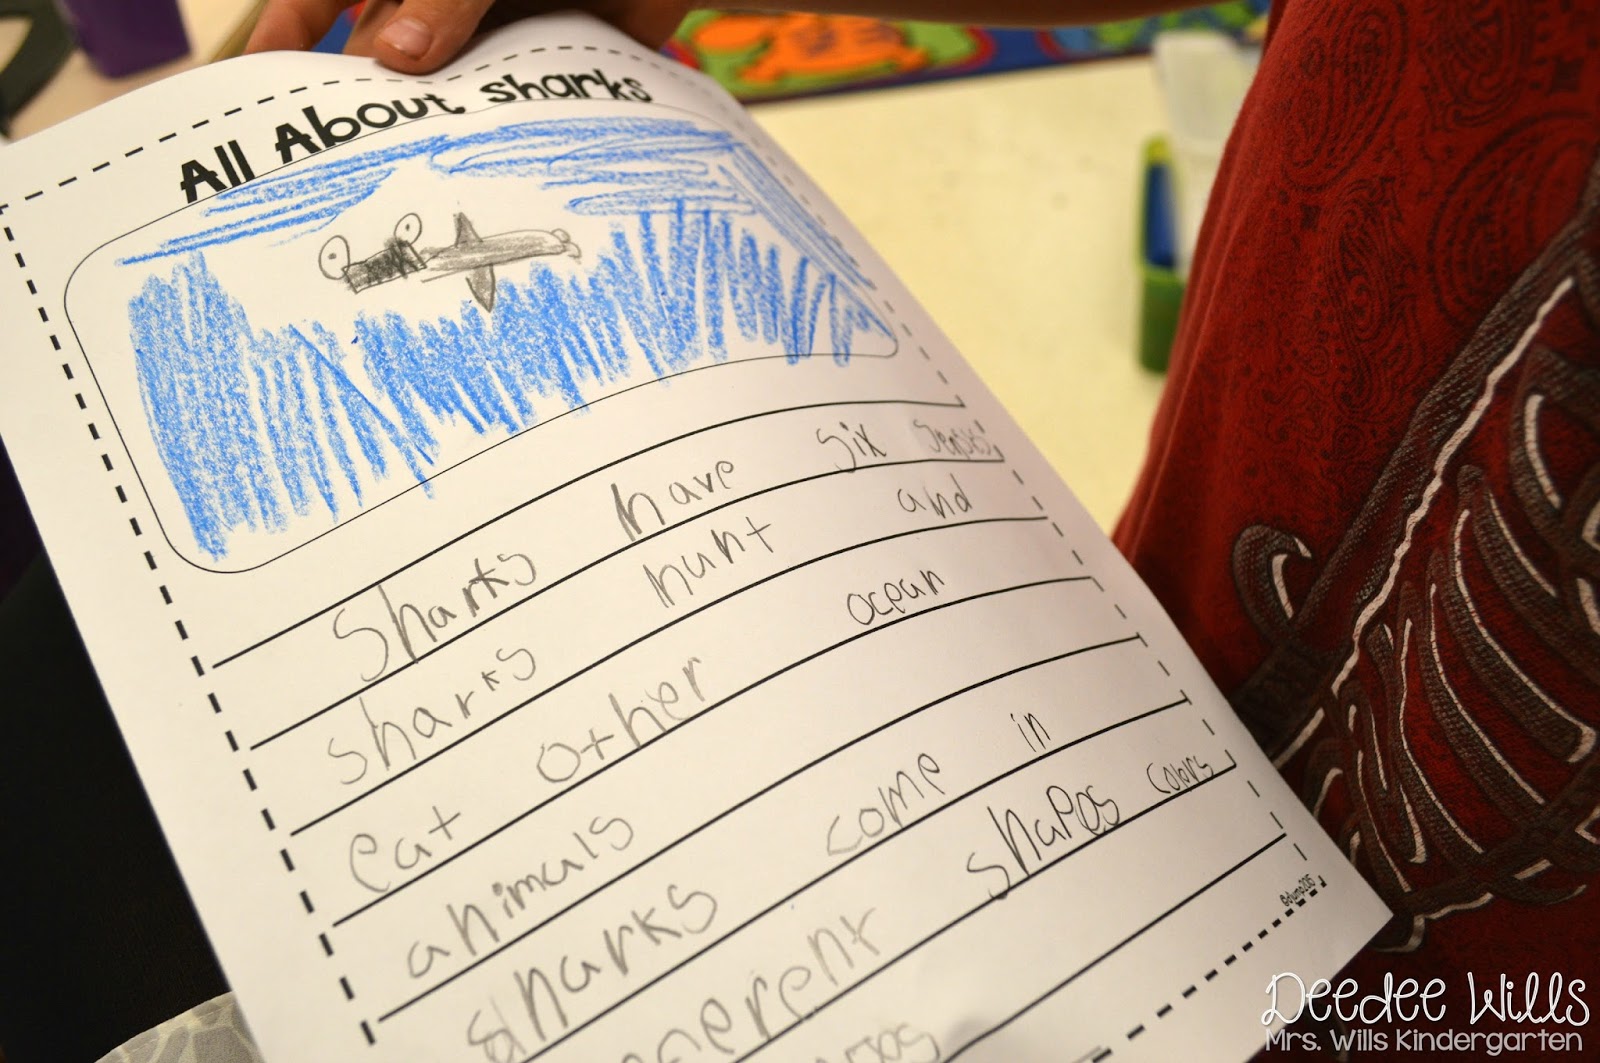 All About sharks
Sharks have six senses.
sharks hunt and
eat other ocean
animals
sharks come in
shapes colors
Deedee Wills
Mrs. Wills Kindergarten